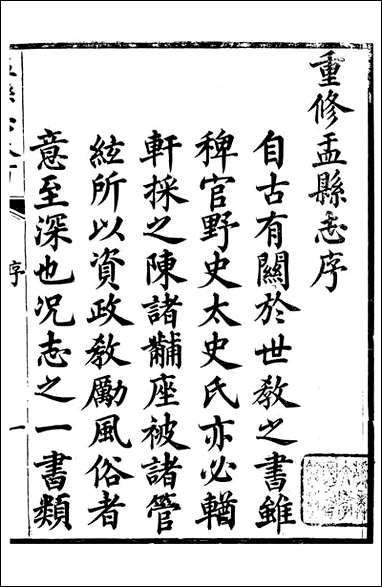 重修盂縣志序
自古有關於世敎之書雖
稗官野史太史氏亦必輶
軒採之陳諸黼座被諸管
絃所以資政敎勵風俗者
意至深也况志之一書類
序
一